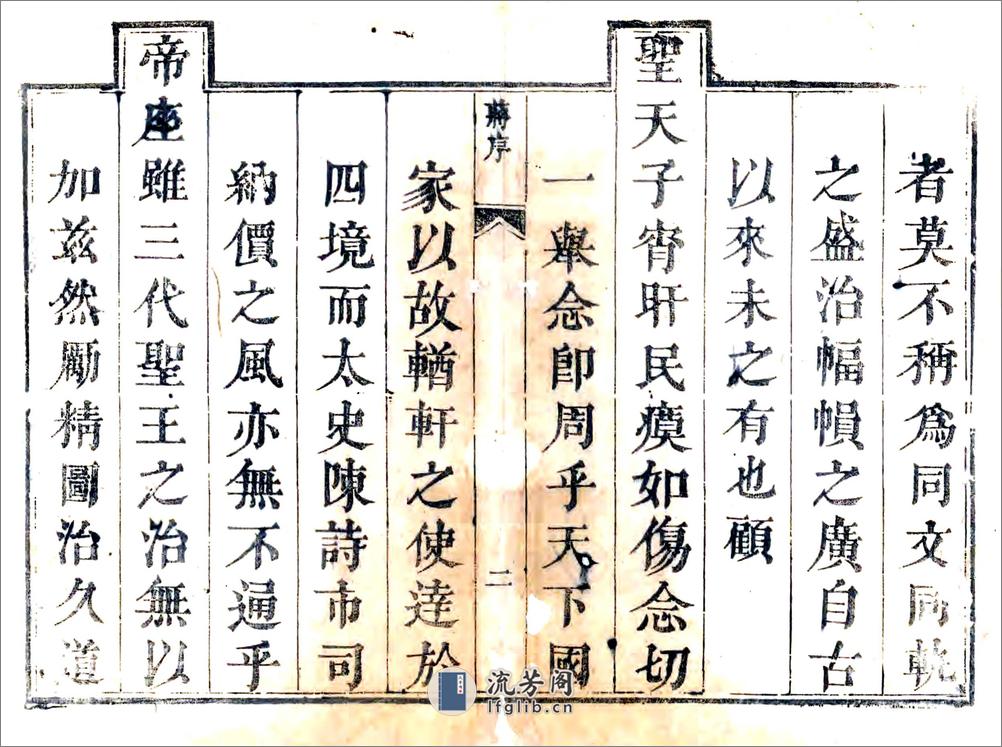 者莫不稱爲同文同軌
之盛治幅幀之廣自古
以來未之有也顧
聖天子宵旰民瘼如傷念切
一舉念卽周乎天下國
蔣序
二
家以故輶軒之使達於
四境而太史陳詩市司
納價之風亦無不通乎
帝座雖三代聖王之治無以
加茲然勵精圖治久道
流芳阁
lfglib.cn